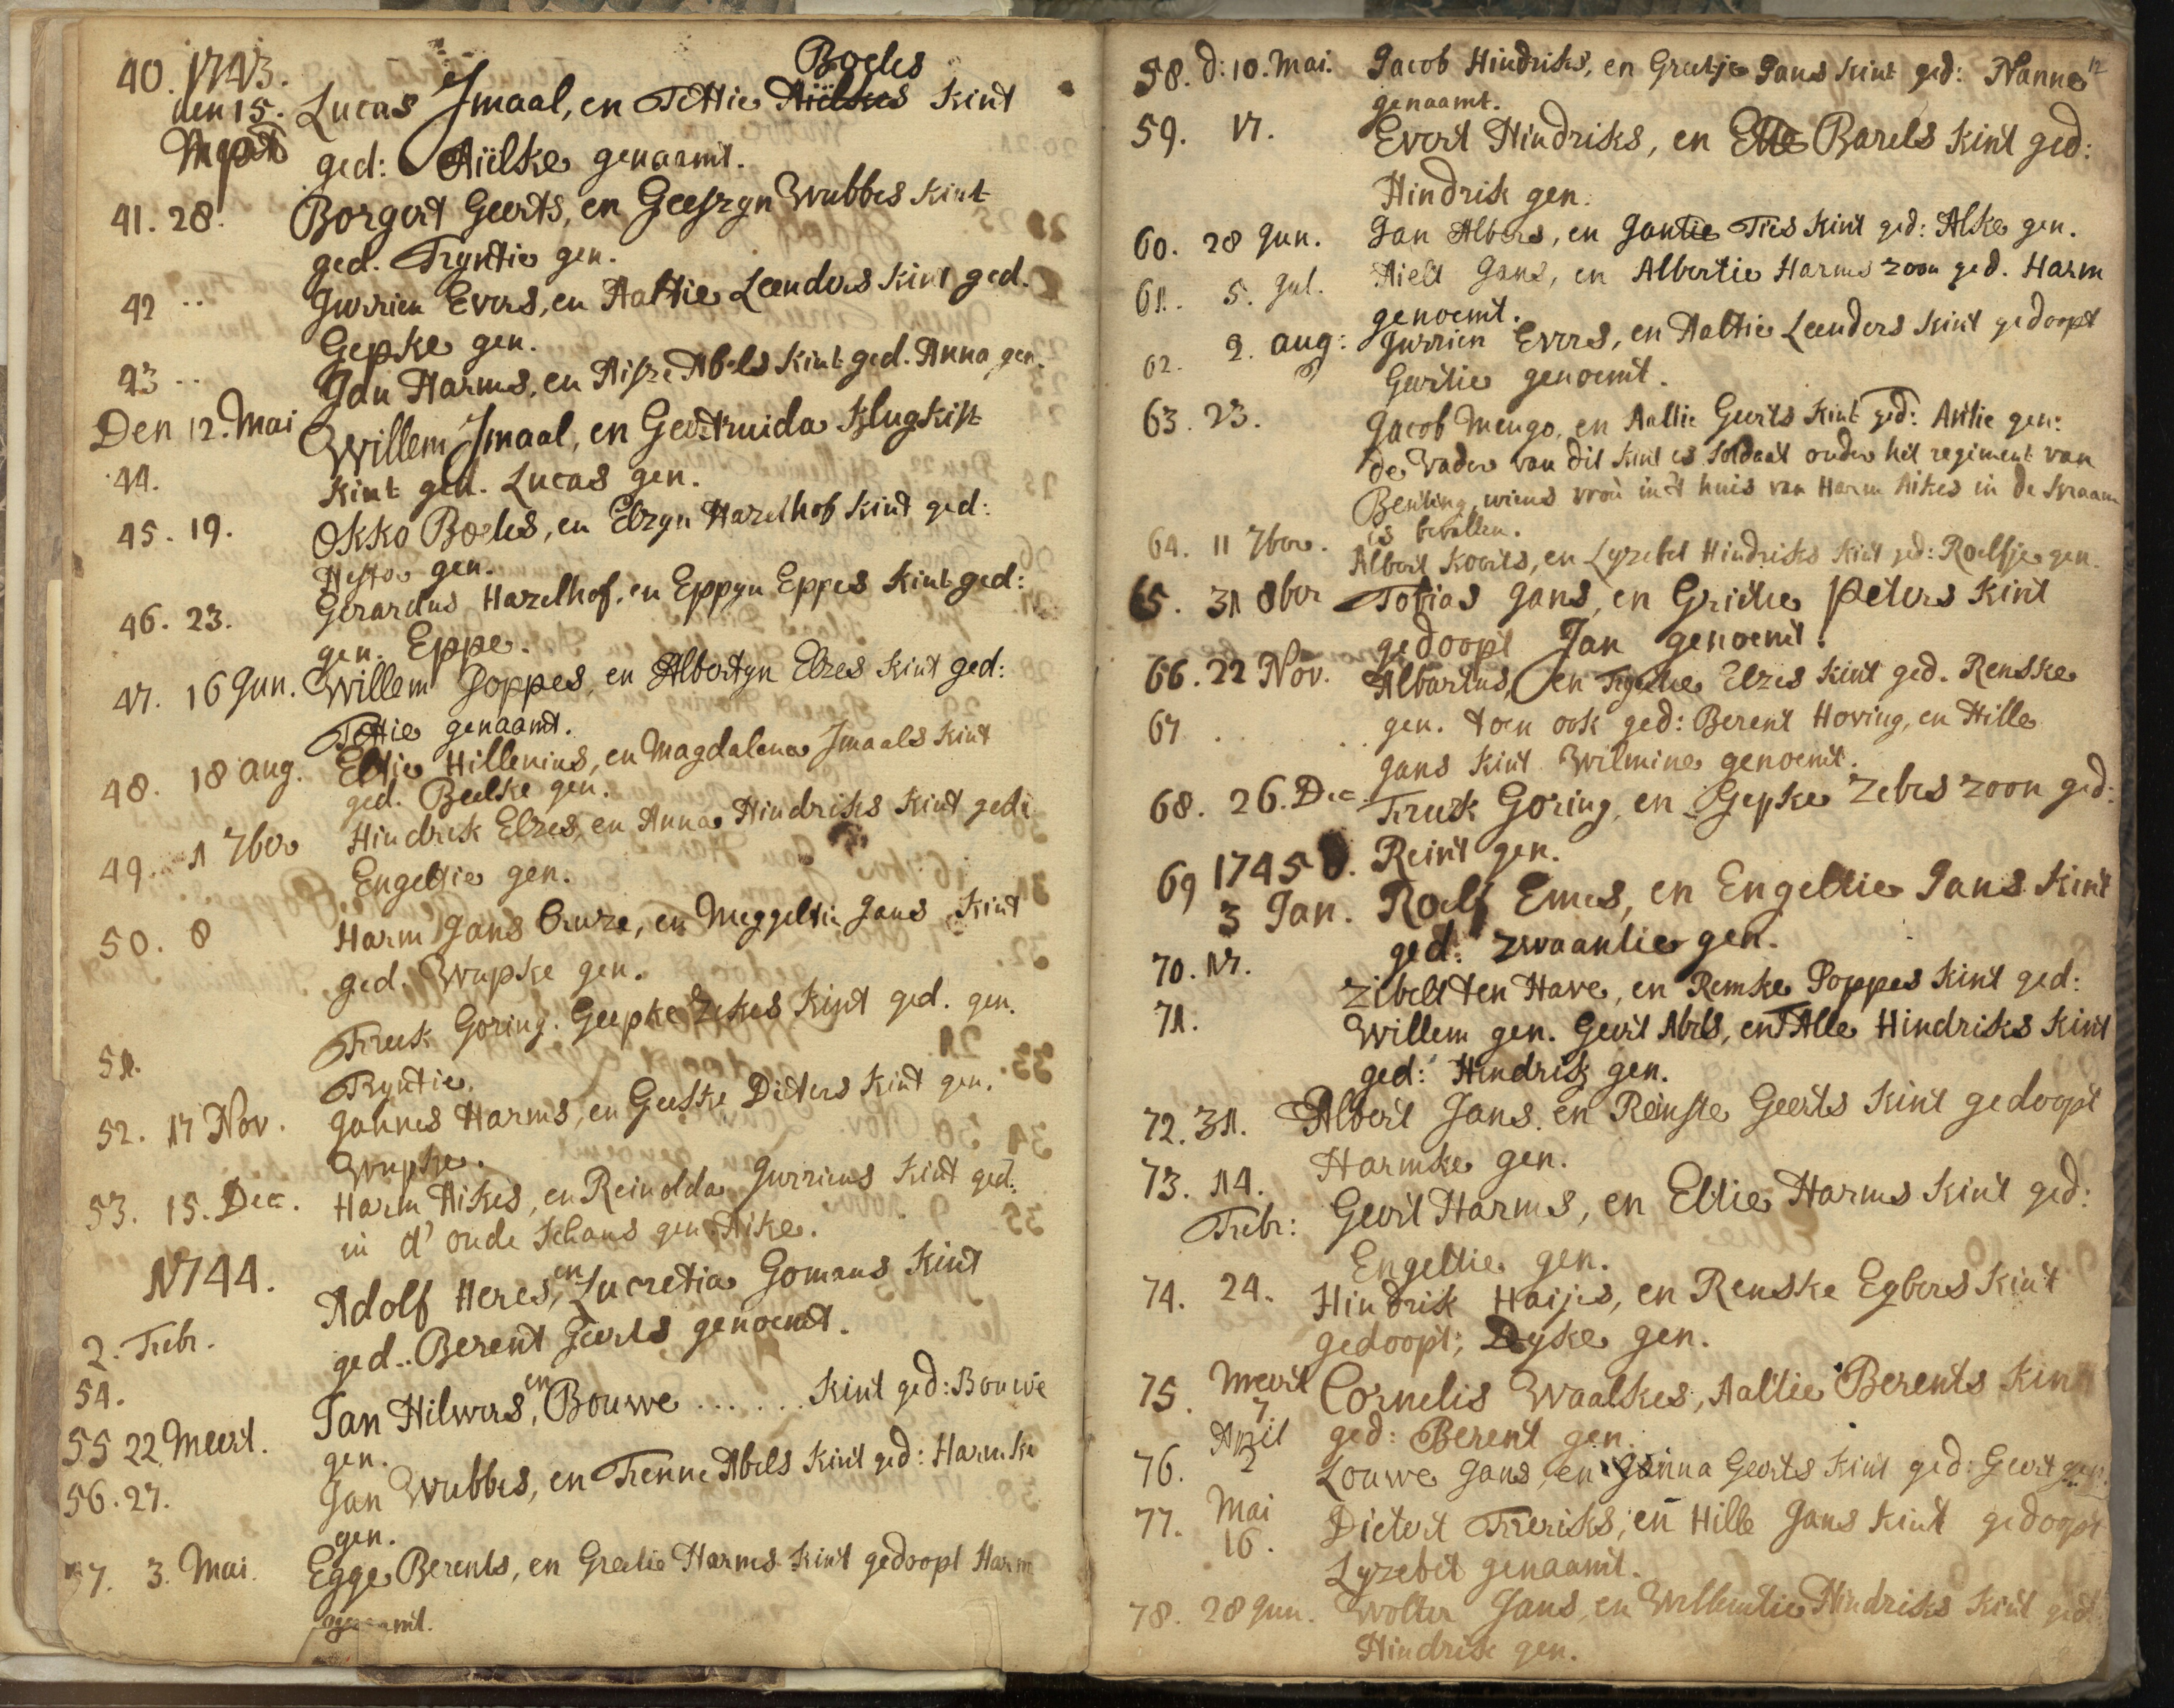 40. 1743.
Boeles
den 15. Lucas Jmaal, en Tettie Aiëlkes Kint
Meert ged: Aiëlke genaamt.
41. 28. Borgert Geerts, en Geeszyn Wubbes Kint
ged. Tryntie gen.
42 .. Jurrien Evers, en Aaltie Leenders Kint ged.
Gepke gen.
43 .. Jan Harms, en Aisze Abels Kint ged. Anna gen.
Den 12. Mai Willem Jmaal, en Geertruida Klugkist
44. Kint ged. Lucas gen.
45. 19. Okko Boeles, en Elzyn Hazelhof Kint ged:
Hester gen.
46. 23. Gerardus Hazelhof, en Eppyn Eppes Kint ged:
gen. Eppe.
47. 16 Jun. Willem Poppes, en Albertyn Elzes Kint ged:
Tettie genaamt.
48. 18 aug. Eltje Hillenius, en Magdalena Jmaals Kint
ged. Beelke gen.
49. 1 7ber Hindrik Elzes, en Anna Hindriks Kint ged:
Engeltie gen.
50. 8 Harm Jans Cruze, en Meggeltie Jans Kint
ged. Wupke gen.
51. Freek Goring. Geepke Zekes Kint ged. gen.
Tryntie.
52. 17 Nov. Jannes Harms, en Geeske Dieters Kint gen.
Wupke.
53. 15. Dec. Harm Aikes, en Reinolda Jurriens Kint ged:
in d' oude Schans gen. Aike.
1744.
Adolf Heres, en Lucretia Gomans Kint
2. Febr. ged.. Berent Geerts genoemt.
54. Jan Hilwers, en Bouwe ...... Kint ged: Bouwe
55 22 Meert. gen.
56. 27. Jan Wubbes, en Frenne Abels Kint ged: Harmke
gen.
57. 3. Mai. Egge Berents, en Greetie Harms Kint gedoopt Harm
genaamt.
12
58. d: 10. Mai. Jacob Hindriks, en Greetje Jans Kint ged: Nanne
genaamt.
59. 17. Evert Hindriks, en Ette Barels Kint ged:
Hindrik gen.
60. 28 Jun. Jan Albers, en Jantie Ties Kint ged: Alke gen.
61. 5. Jul. Aielt Jans, en Albertie Harms zoon ged. Harm
genoemt.
62. 2. aug: Jurrien Evers, en Aaltie Leenders Kint gedoopt
Geertie genoemt.
63. 23. Jacob Mengo, en Aaltie Geerts Kint ged: Antie gen:
de Vader van dit Kint is Soldaat onder het regiment van
Benting, wiens vrou in't huis van Harm Aikes in de Kraam
is bevallen.
64. 11 7ber. Albert Koerts, en Lyzebet Hindriks Kint ged: Roelfje gen.
65. 31 8ber Tobias Jans, en Grietie Peters Kint
gedoopt Jan genoemt.
66. 22 Nov. Albartus, en Tryntie Elzes Kint ged. Renske
67 . .. gen. toen ook ged: Berent Hoving, en Hille
Jans Kint Wilmina genoemt.
68. 26. Dec. Freek Goring, en Gepke Zebes zoon ged:
Reint gen.
69 1745
3 Jan. Roelf Emes, en Engeltie Jans Kint
ged: Zwaantie gen.
70. 17. Zibelt ten Have, en Remke Poppes Kint ged:
71. Willem gen. Geert Abels, en Talle Hindriks Kint
ged: Hindrik gen.
72. 31. Albert Jans, en Reinste Geerts Kint gedoopt
Harmke gen.
73. 14. Geert Harms, en Eltie Harms Kint ged:
Febr: Engeltie gen.
74. 24. Hindrik Haijes, en Renske Egbers Kint
gedoopt; Dyke gen.
75. Meert Cornelis Waalkes, Aaltie Berents Kint
7. ged: Berent gen.
April
76. 2 Louwe Jans, en Janna Geerts Kint ged: Geert gen.
77. Mai Dietert Freriks, en Hille Jans Kint gedoopt
16. Lyzebet genaamt.
78. 28 Jun. Wolter Jans, en Willemtie Hindriks Kint ged:
Hindrik gen.